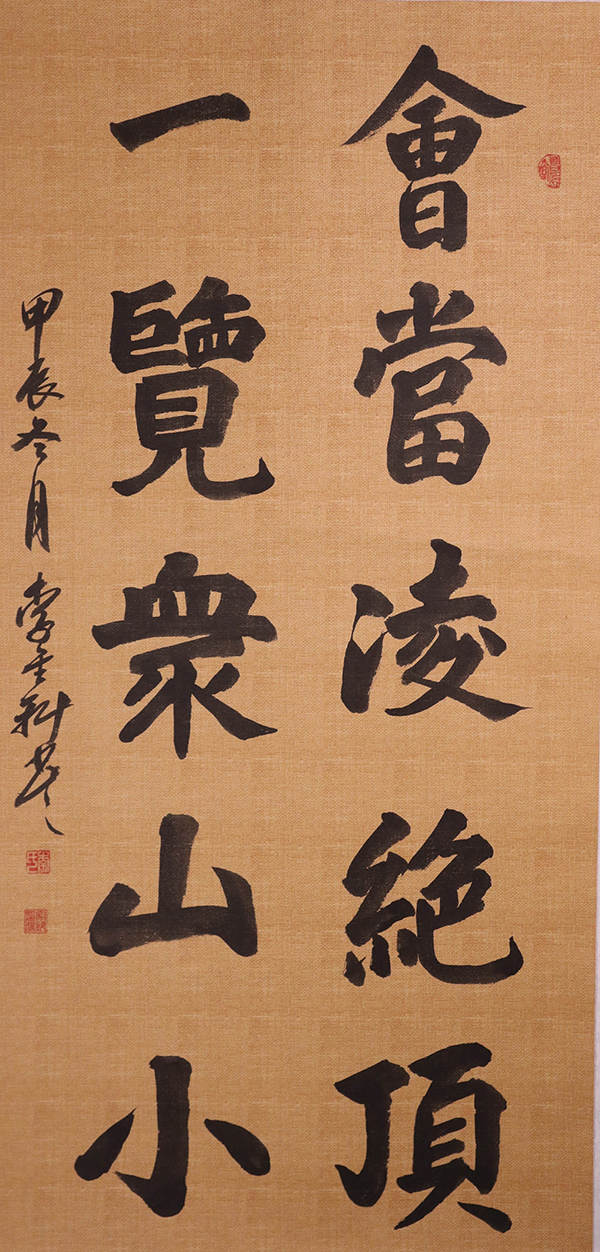 會當淩絶頂
一覽衆山小
甲辰冬月李重科書